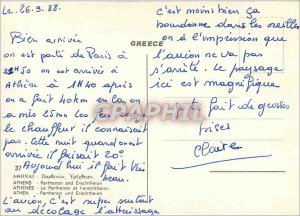 Le 26.9.88.
Bien arrivée
on est parti de Paris à
on est arrivée à
Athène à 1H40 après
on a fait 40km en car on
a mis 25mn les
le chauffeur il connaissait
pas. Cette nuit quand on est
arrivée il faisait 20°
Aujourd'hui il fait très
beau.
GREECE
c'est moins bien ça
bourdonne dans les oreilles
on a l'impression que
l'avion ne va pas
s'arrêté. Le paysage
ici est magnifique
te fait de grosses
bises
Claire
CPAPHIL.com
Parthenon and Erechtheion
ATHENES - Le Parthénon et l'érechthéion
ATHEN - Parthenon und Erechtheion
L'avion, c'est super surtout
au décolage l'atterissage